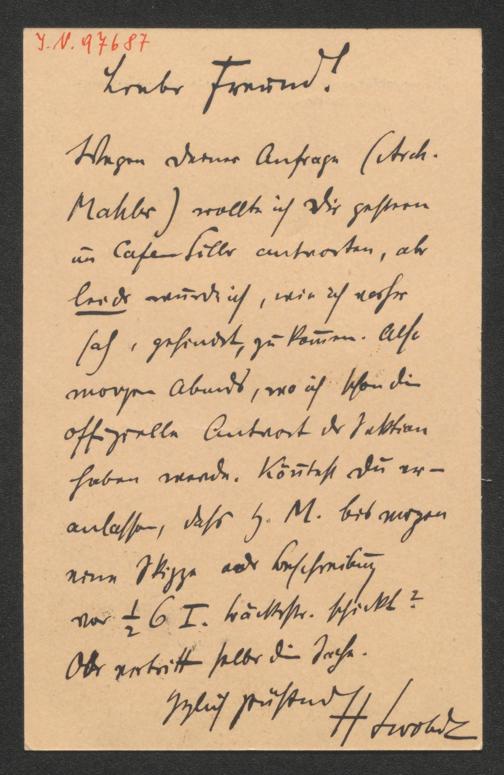 J. N. 97687
Lieber Freund!
Wegen Deiner Anfrage (Arch.
Mahler) wollte ich Dir gestern
im Cafe Siller antworten, aber
leider wurde ich, wie ich vorher
sah, gehindert, zu kom̄en. Also
morgen Abends, wo ich schon die
offizielle Antwort der Sektion
haben werde. Kön̄test Du ver-
anlassen, dass H. M. bis morgen
eine Skizze oder Beschreibung
vor ½ 6 I. schickt?
Oder vertritt selber die Sache.
Hzlich grüßend
H Swoboda